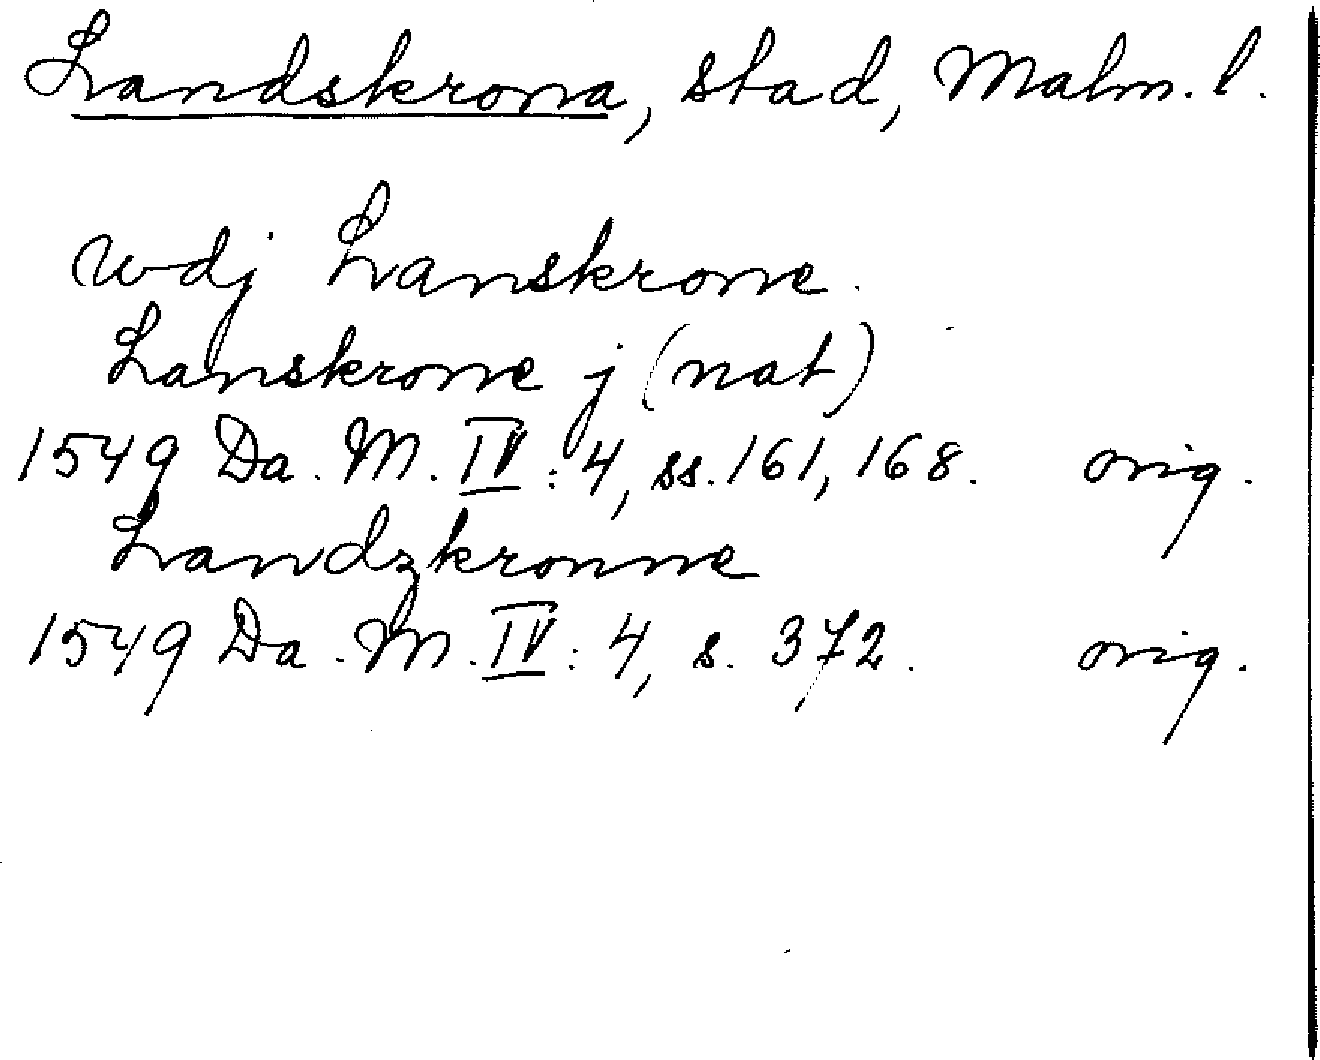 Landskrona, stad, Malm. l.
wdj Lanskrone.
Lanskrone j (nat)
1549 Da. M. IV: 4, ss. 161, 168. orig.
Landzkronne
1549 Da. M. IV: 4, s. 372. orig.